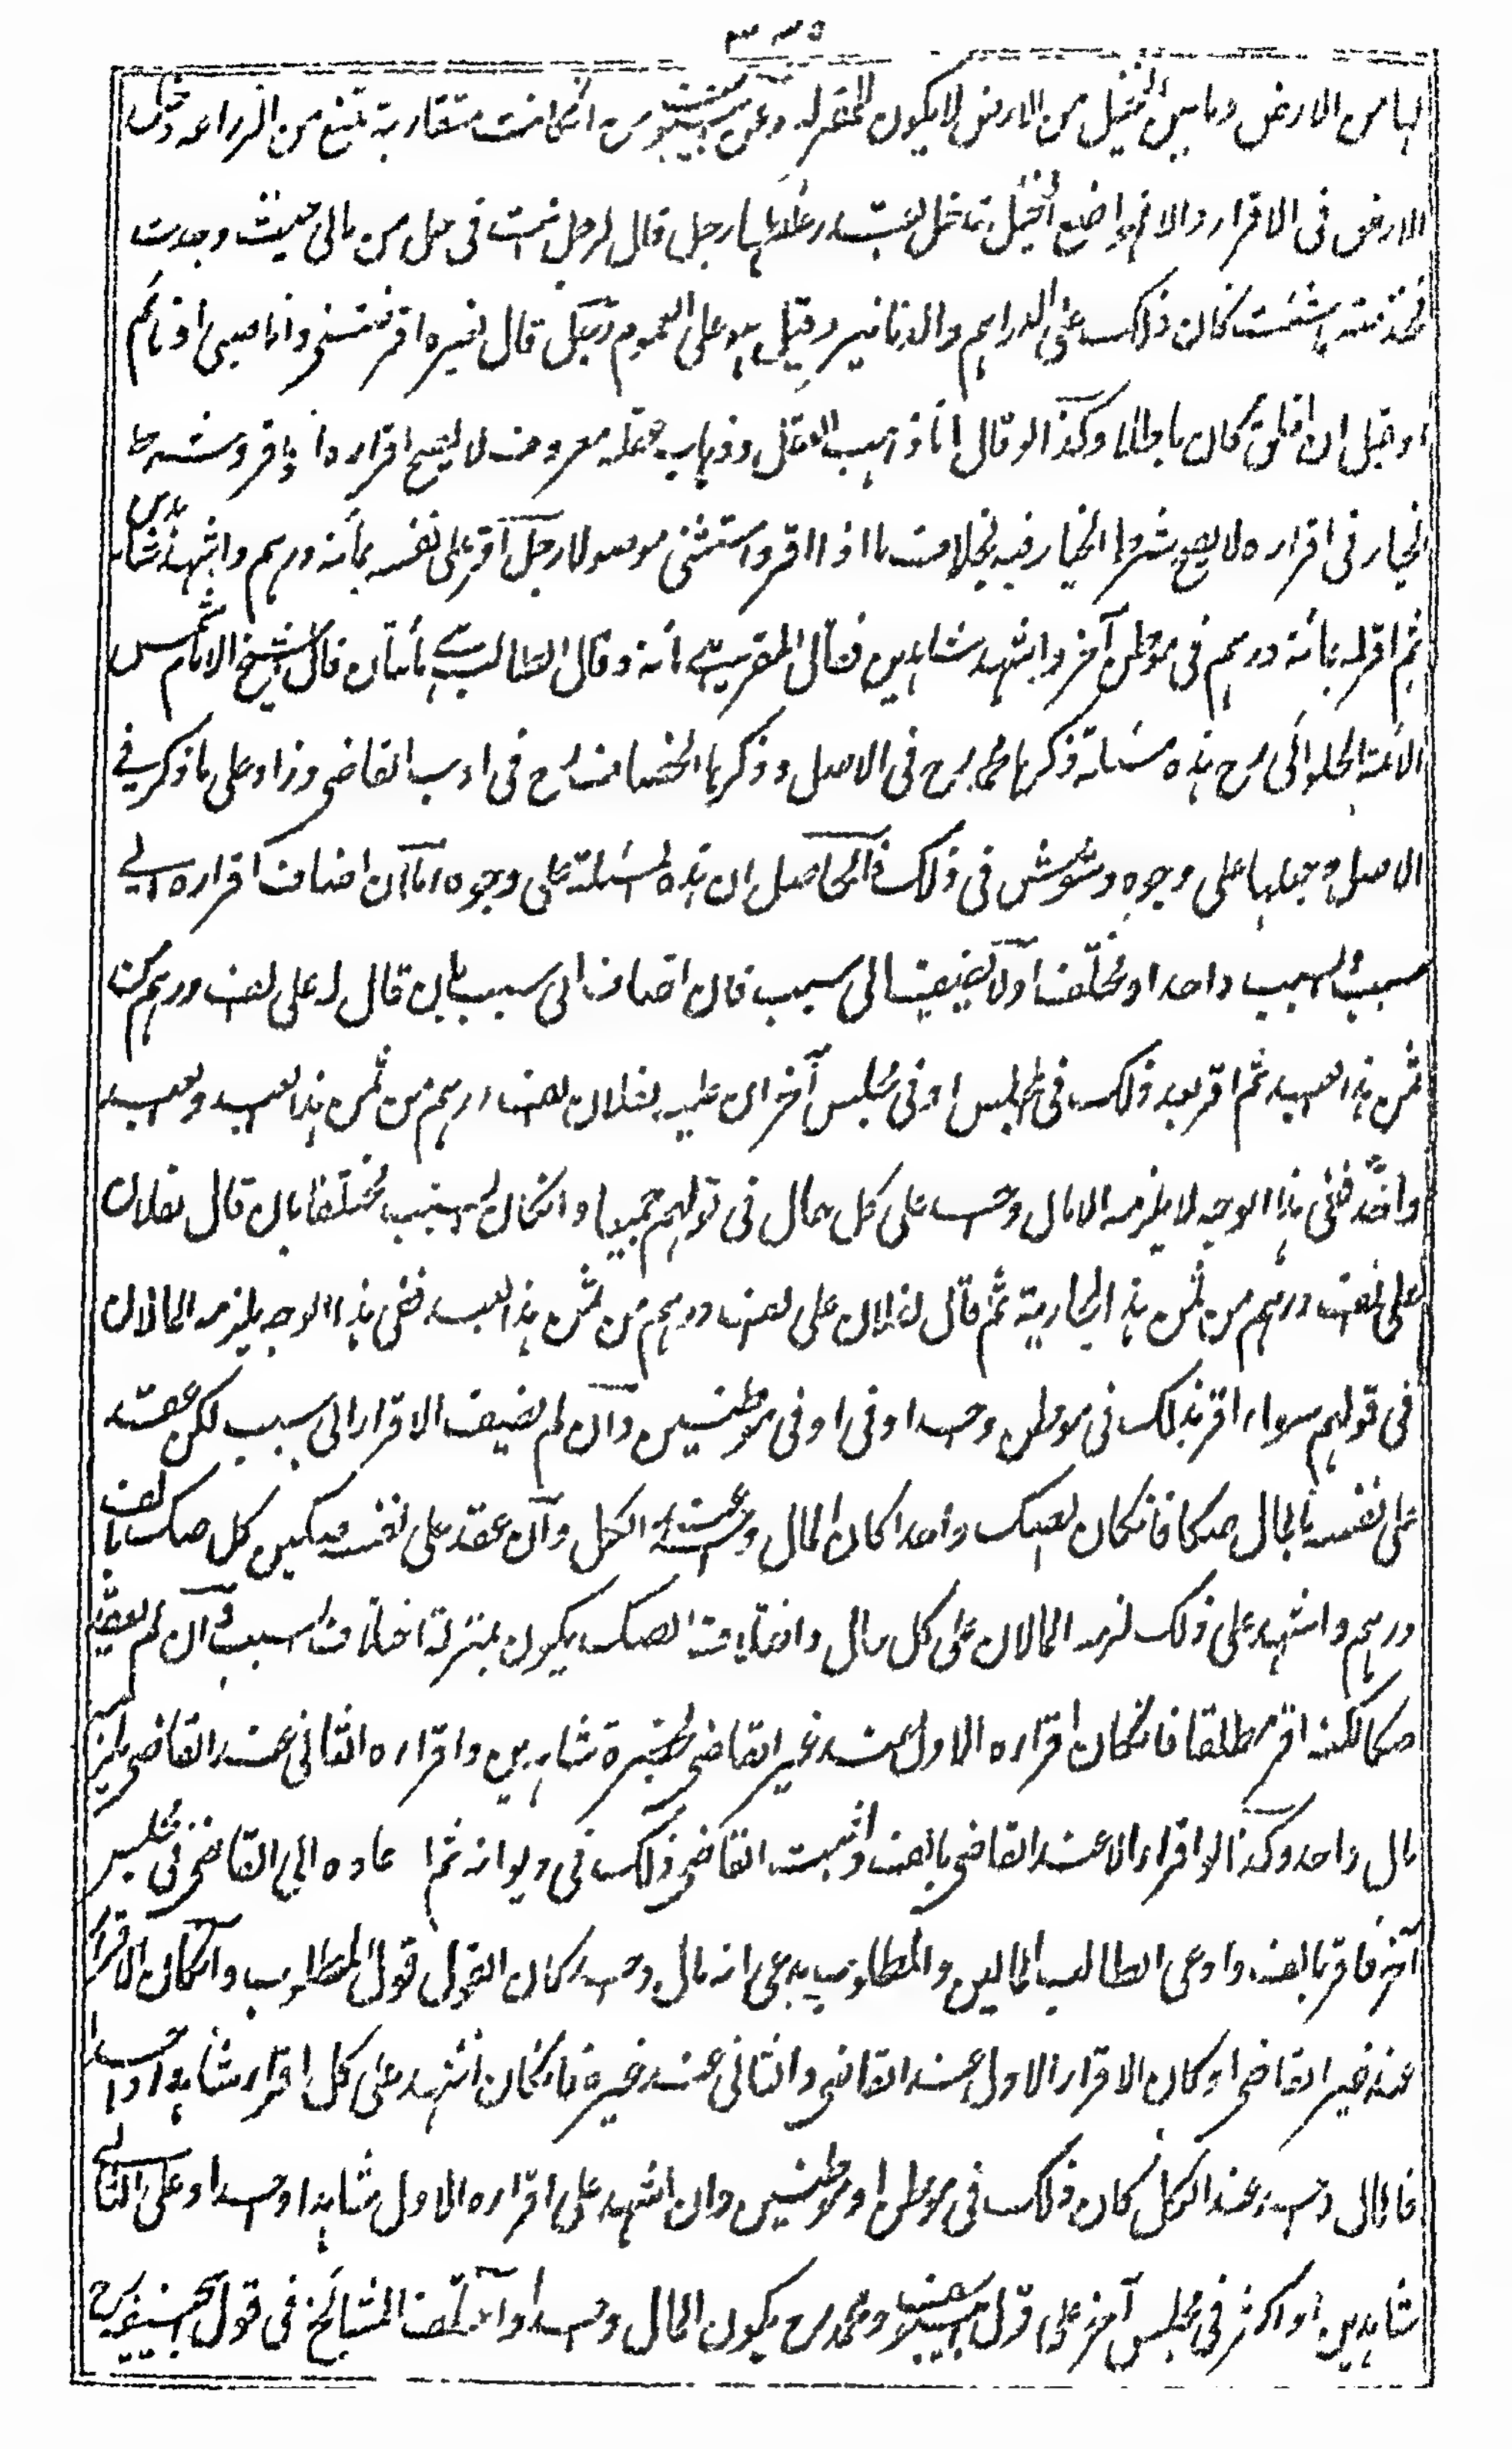 لها من الارض وما بين النخيل من الارض لا يكون للمقر له وعن ان كانت متقاربة تمنع من الزراعة دخل
الارض فى الاقرار والا فمواضع النخيل تدخل بقدر غلظها رجل قال لرجل انت فى حل من مالى حيث وجدت
فخذ منه ما شئت كان ذلك على الدراهم والدنانير وقيل هو على العموم رجل قال لغيره اقرضتنى وانا صبى او نائم
او قبل ان اخلق كان باطلا وكذا لو قال انا ذاهب العقل وذهاب عقله معروف لا يصح اقراره اذا اقر وشرط
الخيار فى اقراره لا يصح شرط الخيار فيه بخلاف ما اذا اقر واستثنى موصولا رجل اقر على نفسه بمائة درهم واشهد شاهدين
ثم اقر له بمائة درهم فى موطن آخر واشهد شاهدين فقال المقر هى مائة وقال الطالب هى مائتان قال الشيخ الامام شمس
الائمة الحلوائى رح هذه مسئلة ذكرها محمد رح فى الاصل وذكرها الخصاف رح فى ادب القاضى وزاد على ما ذكر فى
الاصل وجعلها على وجوه وشوش فى ذلك فالحاصل ان هذه المسئلة على وجوه اما ان اضاف اقراره الى
سبب والسبب واحد او مختلف اولا يضيف الى سبب فان اضاف الى سبب بان قال له على الف درهم من
ثمن هذا العبد ثم اقر بعد ذلك فى المجلس او فى مجلس آخر ان عليه لفلان الف درهم من ثمن هذا العبد والعبد
واحد ففى هذا الوجه لا يلزمه الا مال واحد على كل حال فى قولهم جميعا وان كان السبب مختلفا بان قال لفلان
على الف درهم من ثمن هذه الجارية ثم قال لفلان على الف درهم من ثمن هذا العبد ففى هذا الوجه يلزمه المالان
فى قولهم سواء اقر بذلك فى موطن واحد او فى او فى موطنين وان لم يضف الاقرار الى سبب لكن عقد
على نفسه بالمال صكا فان كان الصك واحدا كان المال واحدا عند الكل وان عقد على نفسه صكين كل صك بالف
درهم واشهد على ذلك لزمه المالان على كل حال واختلاف الصك يكون بمنزلة اختلاف السبب وان لم يعقد
صكا لكنه اقر مطلقا فان كان اقراره الاول عند غير القاضى بحضرة شاهدين واقراره الثانى عند القاضى يلزمه
مال واحد وكذا لو اقر اولا عند القاضى بالف واثبت القاضى ذلك فى ديوانه ثم اعاده الى القاضى فى مجلس
آخر فاقر بالف وادعى الطالب المالين والمطلوب يدعى انه مال واحد كان القول قول المطلوب وان كان الاقرار
عند غير القاضى او كان الاقرار الاول عند القاضى والثانى عند غيره فان كان اشهد على كل اقرار شاهدا واحدا
فالمال واحد عند الكل كان ذلك فى موطن او موطنين وان اشهد على اقراره الاول شاهدا واحدا وعلى الثانى
شاهدين او اكثر فى مجلس آخر على قول ابى يوسف ومحمد رح يكون المال واحدا واختلف المشائخ فى قول ابى حنيفة رح